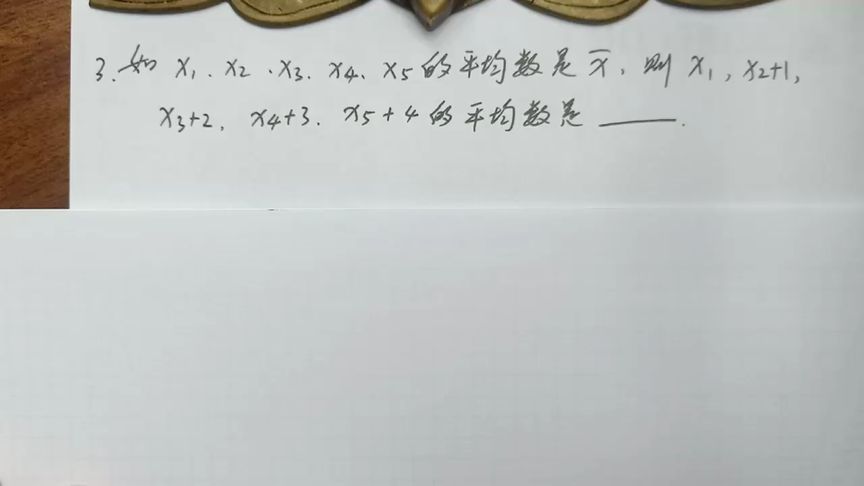 3. 如 x₁、x₂、x₃、x₄、x₅的平均数是 x̄,则 x₁,x₂+1,
x₃+2,x₄+3、x₅+4的平均数是 ____.